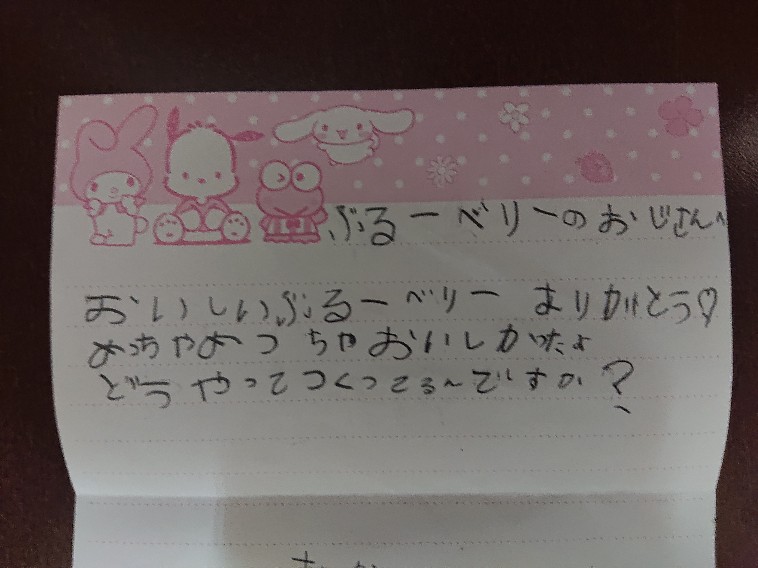 ぶるーべリーのおじさんへ
おいしいぶるーべリーありがとう♡
めっちゃめっちゃおいしかったよ
どうやってつくってる〜ですか?